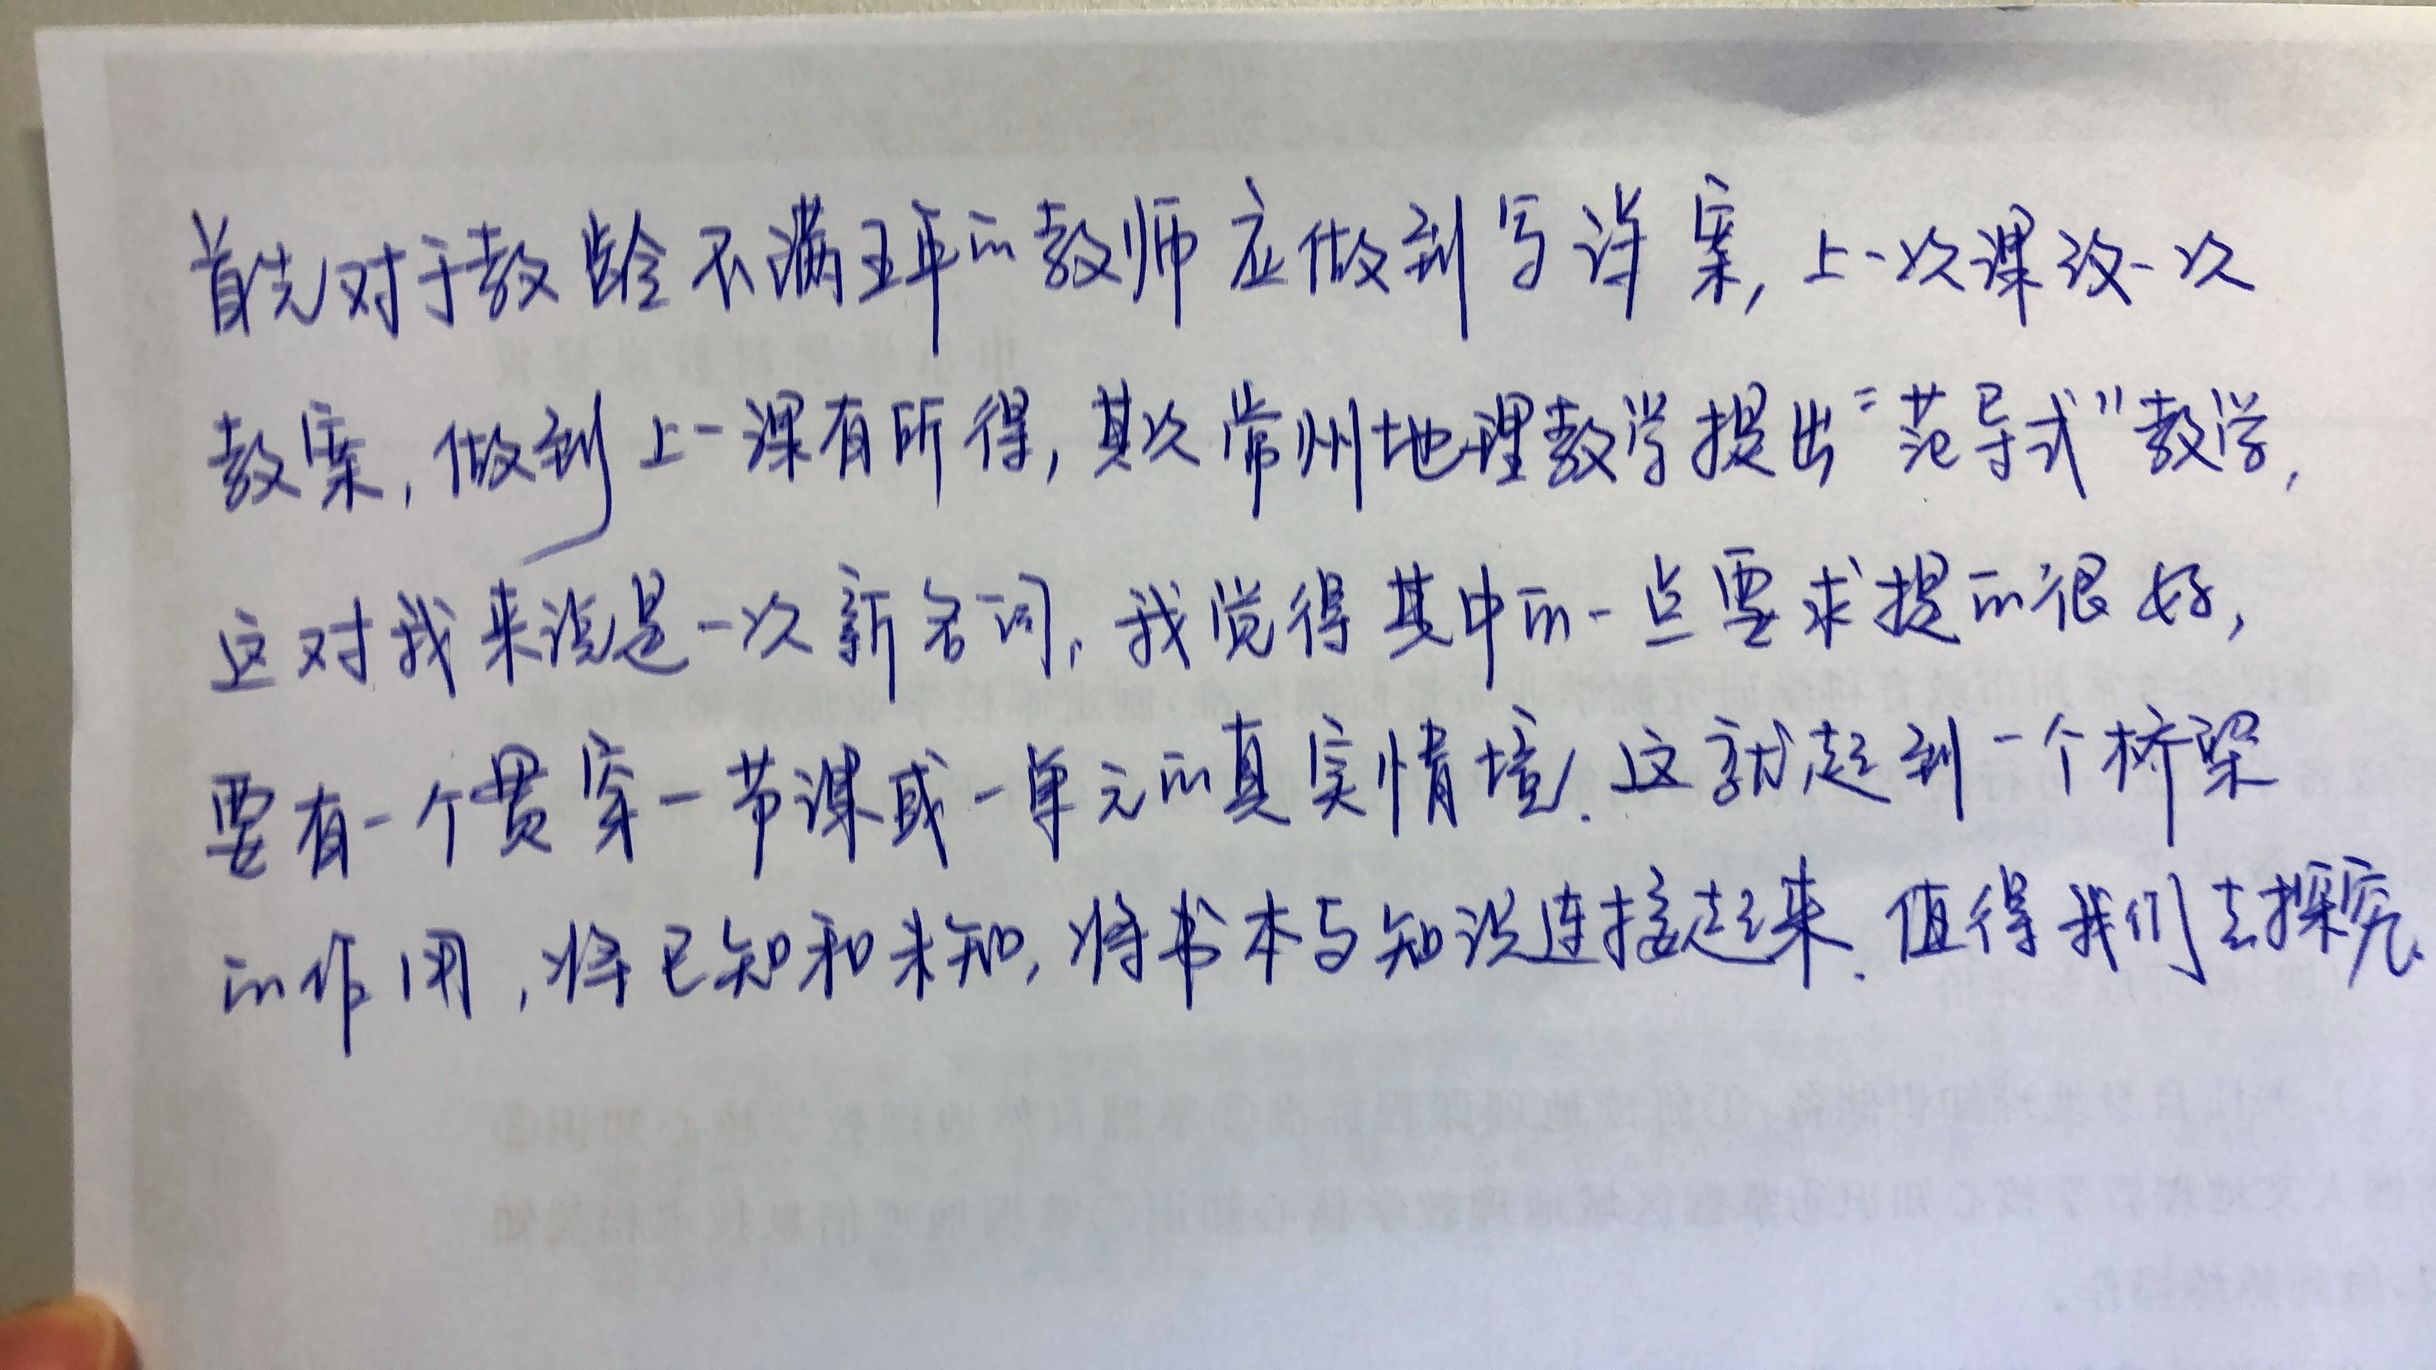 首先对于教龄不满五年的教师应做到写详案,上一次课改一次
教案,做到上一课有所得,其次常州地理教学提出“范导式”教学,
这对我来说是一次新名词,我觉得其中的一点要求提的很好,
要有一个贯穿一节课或一单元的真实情境.这就起到一个桥梁
的作用,将已知和未知,将书本与知识连接起来.值得我们去探究.